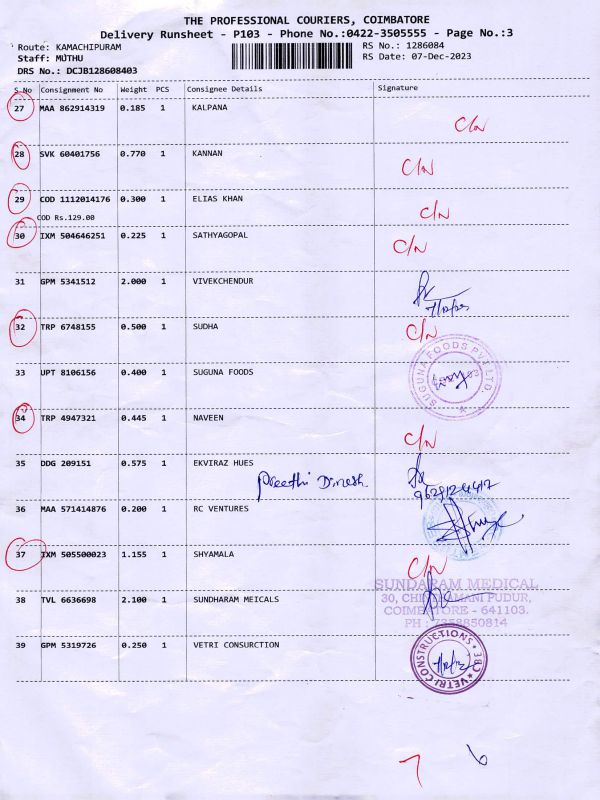 THE PROFESSIONAL COURIERS, COIMBATORE
Delivery Runsheet - P103 - Phone No.:0422-3505555 - Page No.:3
Route: KAMACHIPURAM RS No.: 1286084
Staff: MUTHU RS Date: 07-Dec-2023
DRS No.: DCJB128608403
S.No Consignment No Weight PCS Consignee Details Signature
27 MAA 862914319 0.185 1 KALPANA C/N
28 SVK 60401756 0.770 1 KANNAN C/N
29 COD 1112014176 0.300 1 ELIAS KHAN C/N
COD Rs.129.00
30 IXM 504646251 0.225 1 SATHYAGOPAL C/N
31 GPM 5341512 2.000 1 VIVEKCHENDUR
32 TRP 6748155 0.500 1 SUDHA C/N
33 UPT 8106156 0.400 1 SUGUNA FOODS
SUGUNA FOODS PVT LTD.
34 TRP 4947321 0.445 1 NAVEEN C/N
35 DDG 209151 0.575 1 EKVIRAZ HUES
Preethi Dinesh.
36 MAA 571414876 0.200 1 RC VENTURES
37 IXM 505500023 1.155 1 SHYAMALA C/N
SUNDARAM MEDICAL
38 TVL 6636698 2.100 1 SUNDHARAM MEICALS
COIMBATORE - 641103.
PH : 7358850814
39 GPM 5319726 0.250 1 VETRI CONSURCTION
VETRI CONSTRUCTIONS
7 6